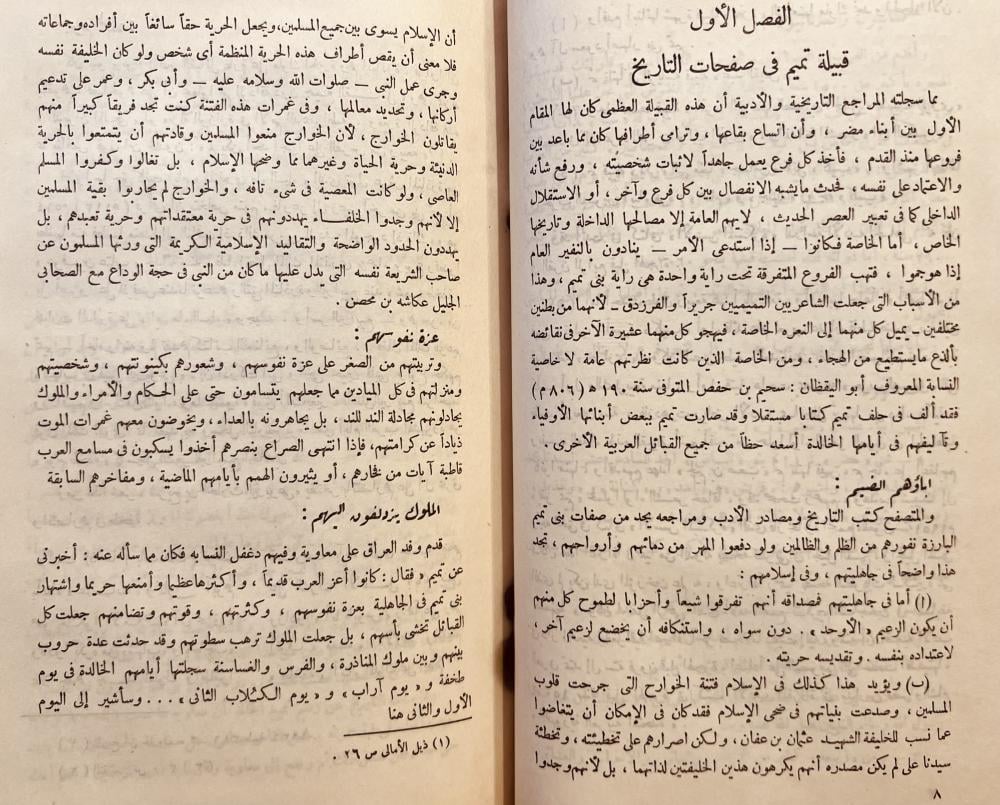 الفصل الأول
قبيلة تميم فى صفحات التاريخ
مما سجلته المراجع التاريخية والأدبية أن هذه القبيلة العظمى كان لها المقام
الأول بين أبناء مضر ، وأن اتساع بقاعها ، وترامى أطرافها كان مما باعد بين
فروعها منذ القدم ، فأخذ كل فرع يعمل جاهداً لاثبات شخصيته ، ورفع شأنه
والاعتماد على نفسه ، فحدث مايشبه الانفصال بين كل فرع وآخر ، أو الاستقلال
الداخلى كما فى تعبير العصر الحديث ، لايهم العامة إلا مصالحها الداخلة وتاريخها
الخاص ، أما الخاصة فكانوا — إذا استدعى الأمر — ينادون بالنفير العام
إذا هوجموا ، فتهب الفروع المتفرقة تحت راية واحدة هى راية بنى تميم ، وهذا
من الأسباب التى جعلت الشاعريين التميميين جريراً والفرزدق — لأنهما من بطنين
مختلفين — يميل كل منهما إلى النعره الخاصة ، فيهجو كل منهما عشيرة الآخر فى نقائضه
بألذع مايستطيع من الهجاء ، ومن الخاصة الذين كانت نظرتهم عامة لا خاصية
النسابة المعروف أبو اليقظان : سحيم بن حفص المتوفى سنة ١٩٠ ه ( ٨٠٦ م )
فقد ألف فى حلف تميم كتابا مستقلا وقد صارت تميم ببعض أبنائها الأوفياء
وتآليفهم فى أيامها الخالدة أسعد حظاً من جميع القبائل العربية الأخرى .
اباؤهم الضيم :
والمتصفح كتب التاريخ ومصادر الأدب ومراجعه يجد من صفات بنى تميم
البارزة نفورهم من الظلم والظالمين ولو دفعوا المهر من دمائهم وأرواحهم ، تجد
هذا واضحاً فى جاهليتهم ، وفى إسلامهم :
(ا) أما فى جاهليتهم فمصداقه أنهم تفرقوا شيعاً وأحزابا لطموح كل منهم
أن يكون الزعيم « الأوحد » . دون سواه ، واستنكافه أن يخضع لزعيم آخر ،
لاعتداده بنفسه . وتقديسه حريته .
(ب) ويؤيد هذا كذلك فى الإسلام فتنة الخوارج التى جرحت قلوب
المسلمين ، وصدعت بنياتهم فى ضحى الإسلام فقد كان فى الإمكان أن يتغاضوا
عما نسب للخليفة الشهيد عثمان بن عفان ، ولكن اصرارهم على تخطيئته ، وتخطئة
سيدنا على لم يكن مصدره أنهم يكرهون هذين الخليفتين لذاتهما ، بل لأنهم وجدوا
٨
أن الإسلام يسوى بين جميع المسلمين ، ويجعل الحرية حقاً سائغاً بين أفراده وجماعاته
فلا معنى أن يقص أطراف هذه الحرية المنظمة أى شخص ولو كان الخليفة نفسه
وجرى عمل النبى — صلوات الله وسلامه عليه — وأبى بكر ، وعمر على تدعيم
أركانها ، وتحديد معالمها ، وفى غمرات هذه الفتنة كنت تجد فريقاً كبيراً منهم
يقاتلون الخوارج ، لأن الخوارج منعوا المسلمين وقادتهم أن يتمتعوا بالحرية
الدنيئة وحرية الحياة وغيرهما مما وضحها الإسلام ، بل تغالوا وكفروا المسلم
العاصى ، ولو كانت المعصية فى شىء تافه ، والخوارج لم يحاربوا بقية المسلمين
إلا لأنهم وجدوا الخلفاء يهددونهم فى حرية معتقداتهم وحرية تعبدهم ، بل
يهددون الحدود الواضحة والتقاليد الإسلامية الكريمة التى ورثها المسلمون عن
صاحب الشريعة نفسه التى يدل عليها ماكان من النبى فى حجة الوداع مع الصحابى
الجليل عكاشه بن محصن .
عزة نفوسهم :
وتربيتهم من الصغر على عزة نفوسهم ، وشعورهم بكينونتهم ، وشخصيتهم
ومنزلتهم فى كل الميادين مما جعلهم يتسامون حتى على الحكام والأمراء والملوك
يجادلونهم مجادلة الند للند ، بل يجاهرونه بالعداء ، ويخوضون معهم غمرات الموت
ذياداً عن كرامتهم ، فإذا انتهى الصراع بنصرهم أخذوا يسكبون فى مسامع العرب
قاطبة آيات من فخارهم ، أو يثيرون الهمم بأيامهم الماضية ، ومفاخرهم السابقة
الملوك يزدلفون اليهم :
قدم وفد العراق على معاوية وفيهم دغفل النسابه فكان مما سأله عنه : أخبرنى
عن تميم » فقال : كانوا أعز العرب قديماً ، وأكثرها عظيما وأمنعها حريما واشتهار
بنى تميم فى الجاهلية بعزة نفوسهم ، وكثرتهم ، وقوتهم وتضامنهم جعلت كل
القبائل تخشى بأسهم ، بل جعلت الملوك ترهب سطوتهم وقد حدثت عدة حروب
بينهم وبين ملوك المناذرة ، والفرس والغساسنة سجلتها أيامهم الخالدة فى يوم
طخفة و « يوم آراب » و « يوم الكلاب الثانى » ... وسأشير إلى اليوم
الأول والثانى هنا
(١) ذيل الأمالى ص ٢٦ .